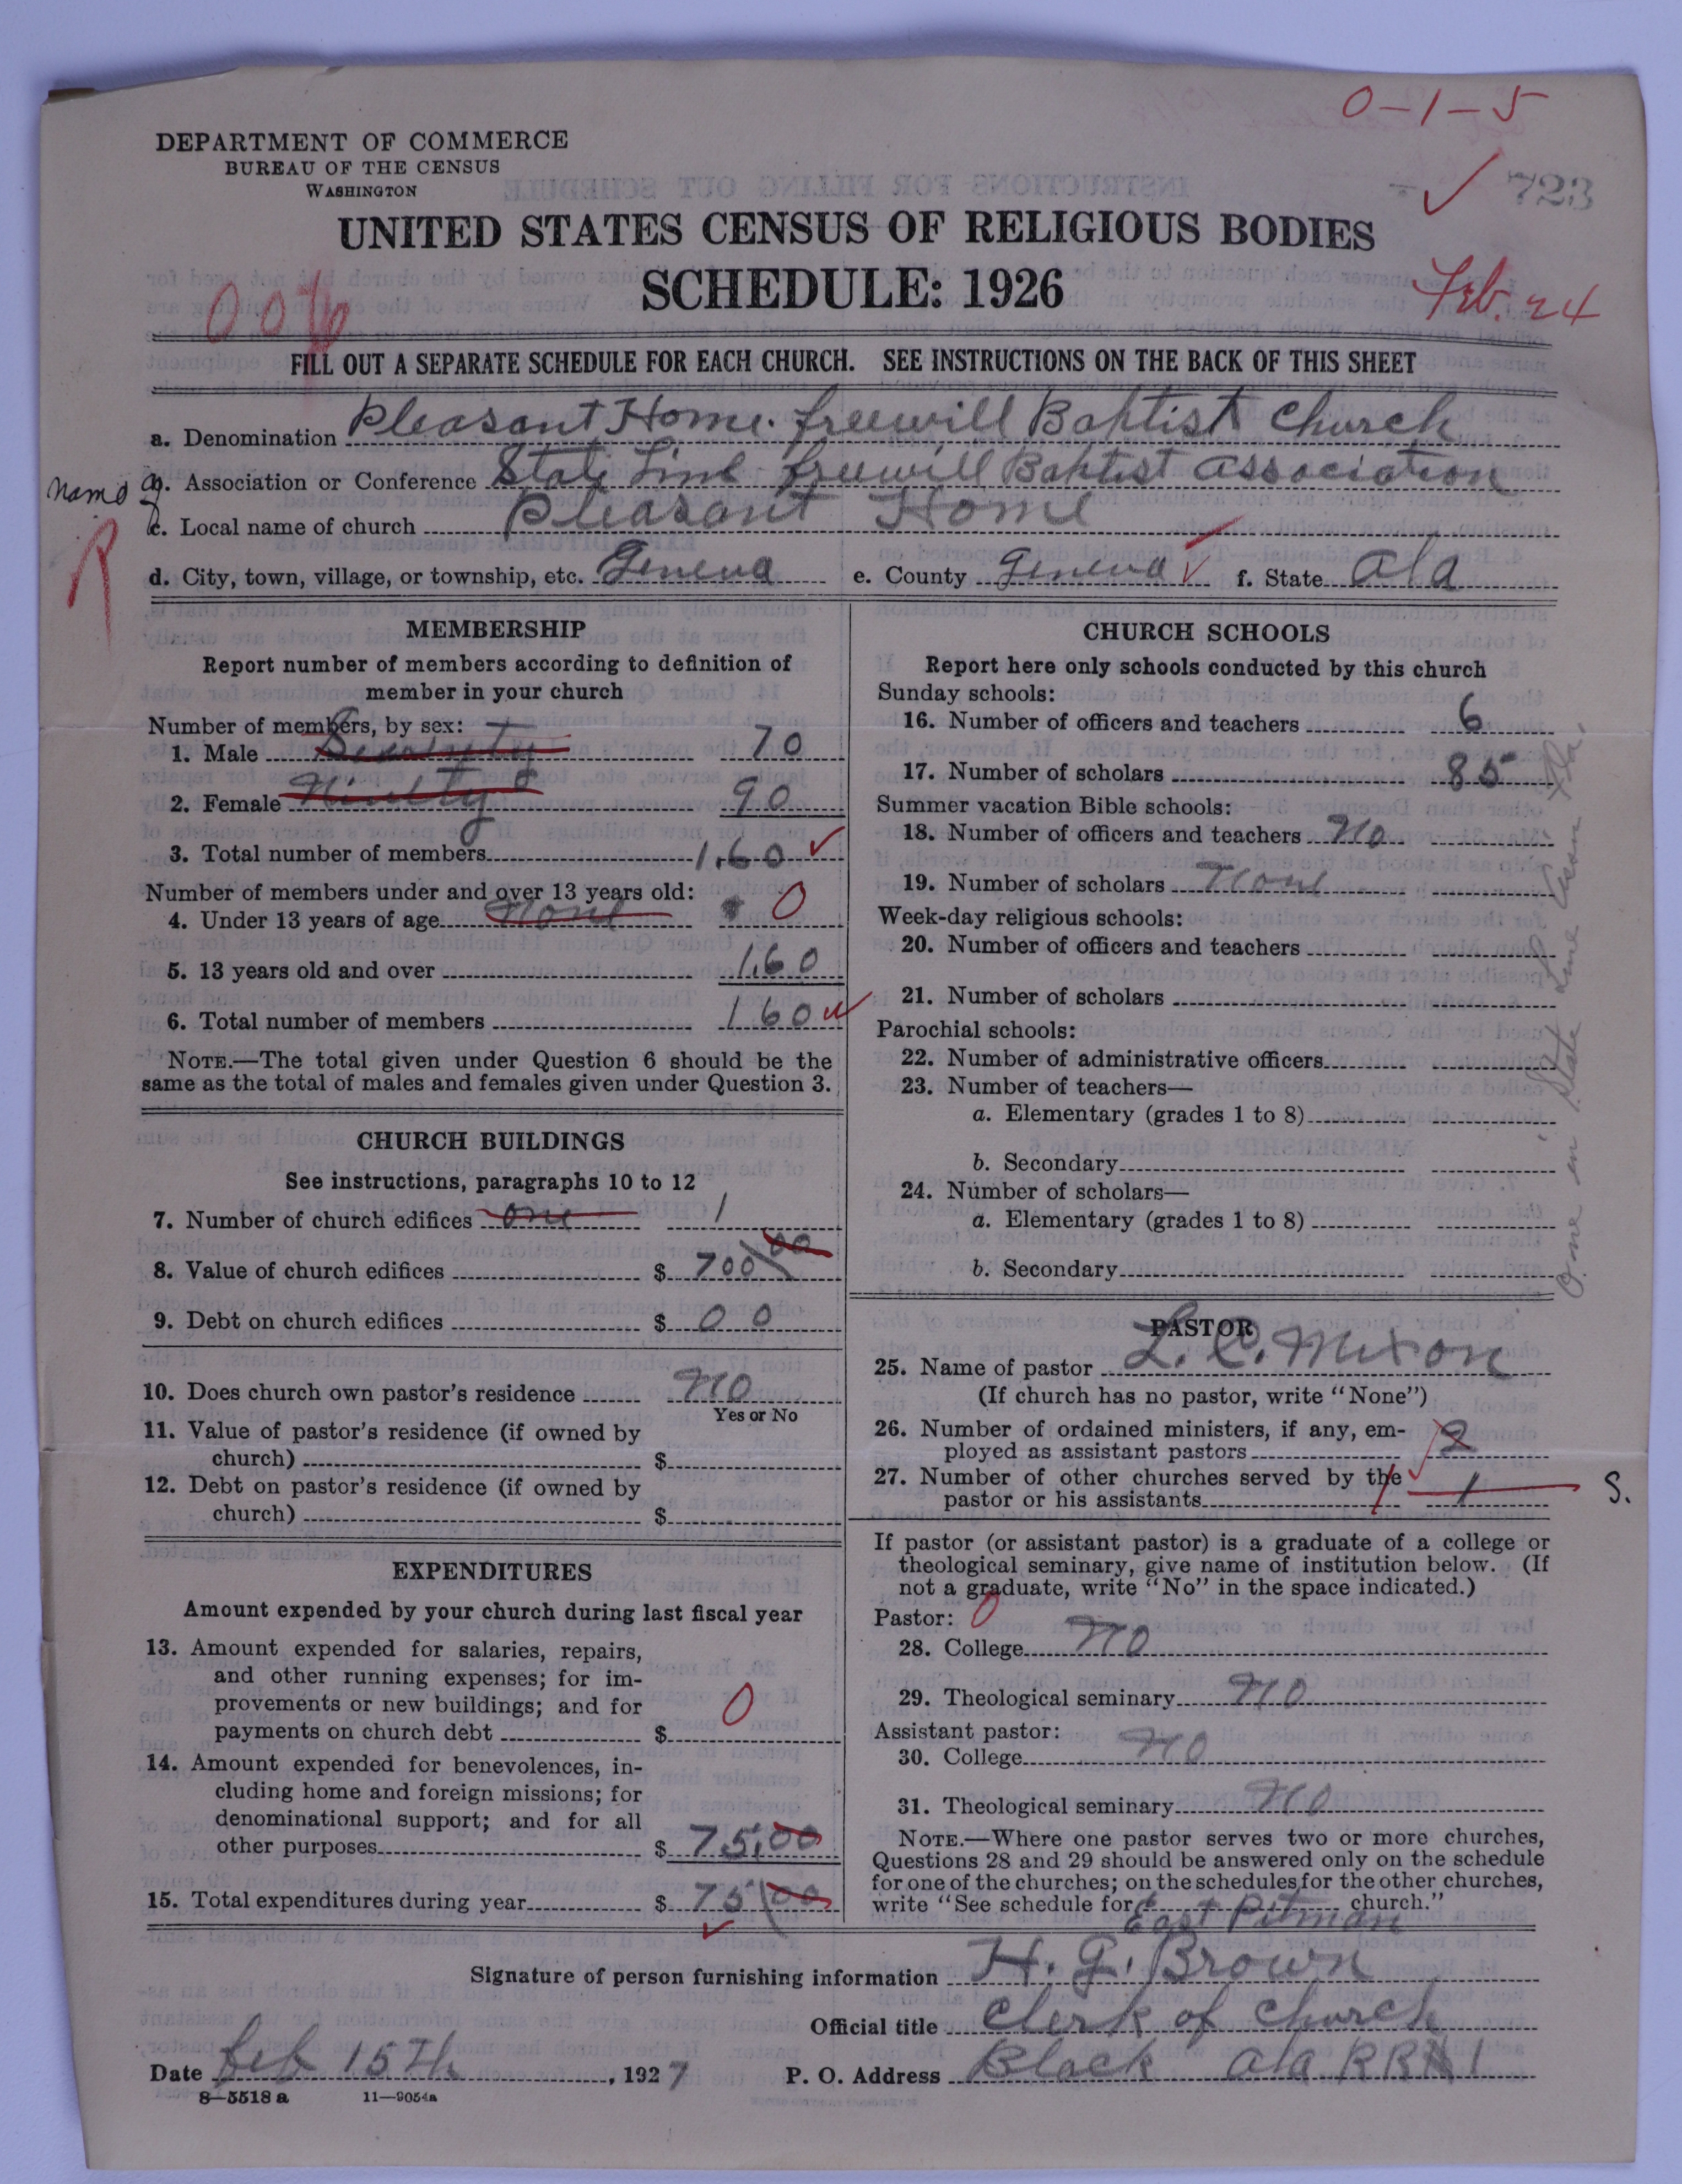 0-1-5
DEPARTMENT OF COMMERCE
BUREAU OF THE CENSUS
WASHINGTON
723
UNITED STATES CENSUS OF RELIGIOUS BODIES
SCHEDULE: 1926
Feb. 24
FILL OUT A SEPARATE SCHEDULE FOR EACH CHURCH. SEE INSTRUCTIONS ON THE BACK OF THIS SHEET
a. Denomination Pleasant Home. freewill Baptist Church
b. Association or Conference State Line freewill Baptist Association
Name
c. Local name of church Pleasant Home
d. City, town, village, or township, etc. Geneva e. County Geneva f. State Ala
MEMBERSHIP
Report number of members according to definition of
member in your church
Number of members, by sex:
1. Male 70
2. Female Ninety 90
3. Total number of members 160
Number of members under and over 13 years old:
4. Under 13 years of age none 0
5. 13 years old and over 160
6. Total number of members 160
NOTE.—The total given under Question 6 should be the
same as the total of males and females given under Question 3.
CHURCH BUILDINGS
See instructions, paragraphs 10 to 12
7. Number of church edifices one 1
8. Value of church edifices $ 700 00
9. Debt on church edifices $ 0 0
10. Does church own pastor's residence no
Yes or No
11. Value of pastor's residence (if owned by
church) $
12. Debt on pastor's residence (if owned by
church) $
EXPENDITURES
Amount expended by your church during last fiscal year
13. Amount expended for salaries, repairs,
and other running expenses; for im-
provements or new buildings; and for
payments on church debt $ 0
14. Amount expended for benevolences, in-
cluding home and foreign missions; for
denominational support; and for all
other purposes $ 75.00
15. Total expenditures during year $ 75 00
CHURCH SCHOOLS
Report here only schools conducted by this church
Sunday schools:
16. Number of officers and teachers 6
17. Number of scholars 85
Summer vacation Bible schools:
18. Number of officers and teachers no
19. Number of scholars none
Week-day religious schools:
20. Number of officers and teachers
21. Number of scholars
Parochial schools:
22. Number of administrative officers
23. Number of teachers—
a. Elementary (grades 1 to 8)
b. Secondary
24. Number of scholars—
a. Elementary (grades 1 to 8)
b. Secondary
One in State Line Assn
PASTOR
25. Name of pastor L. C. Mixon
(If church has no pastor, write "None")
26. Number of ordained ministers, if any, em-
ployed as assistant pastors 2
27. Number of other churches served by the
pastor or his assistants 1 S.
If pastor (or assistant pastor) is a graduate of a college or
theological seminary, give name of institution below. (If
not a graduate, write "No" in the space indicated.)
Pastor: 0
28. College no
29. Theological seminary no
Assistant pastor:
30. College no
31. Theological seminary no
NOTE.—Where one pastor serves two or more churches,
Questions 28 and 29 should be answered only on the schedule
for one of the churches; on the schedules for the other churches,
write "See schedule for East Pitman church."
Signature of person furnishing information H. G. Brown
Official title Clerk of church
Date feb 15th, 1927 P. O. Address Black ala RR#1
8-5518 a 11-9054a